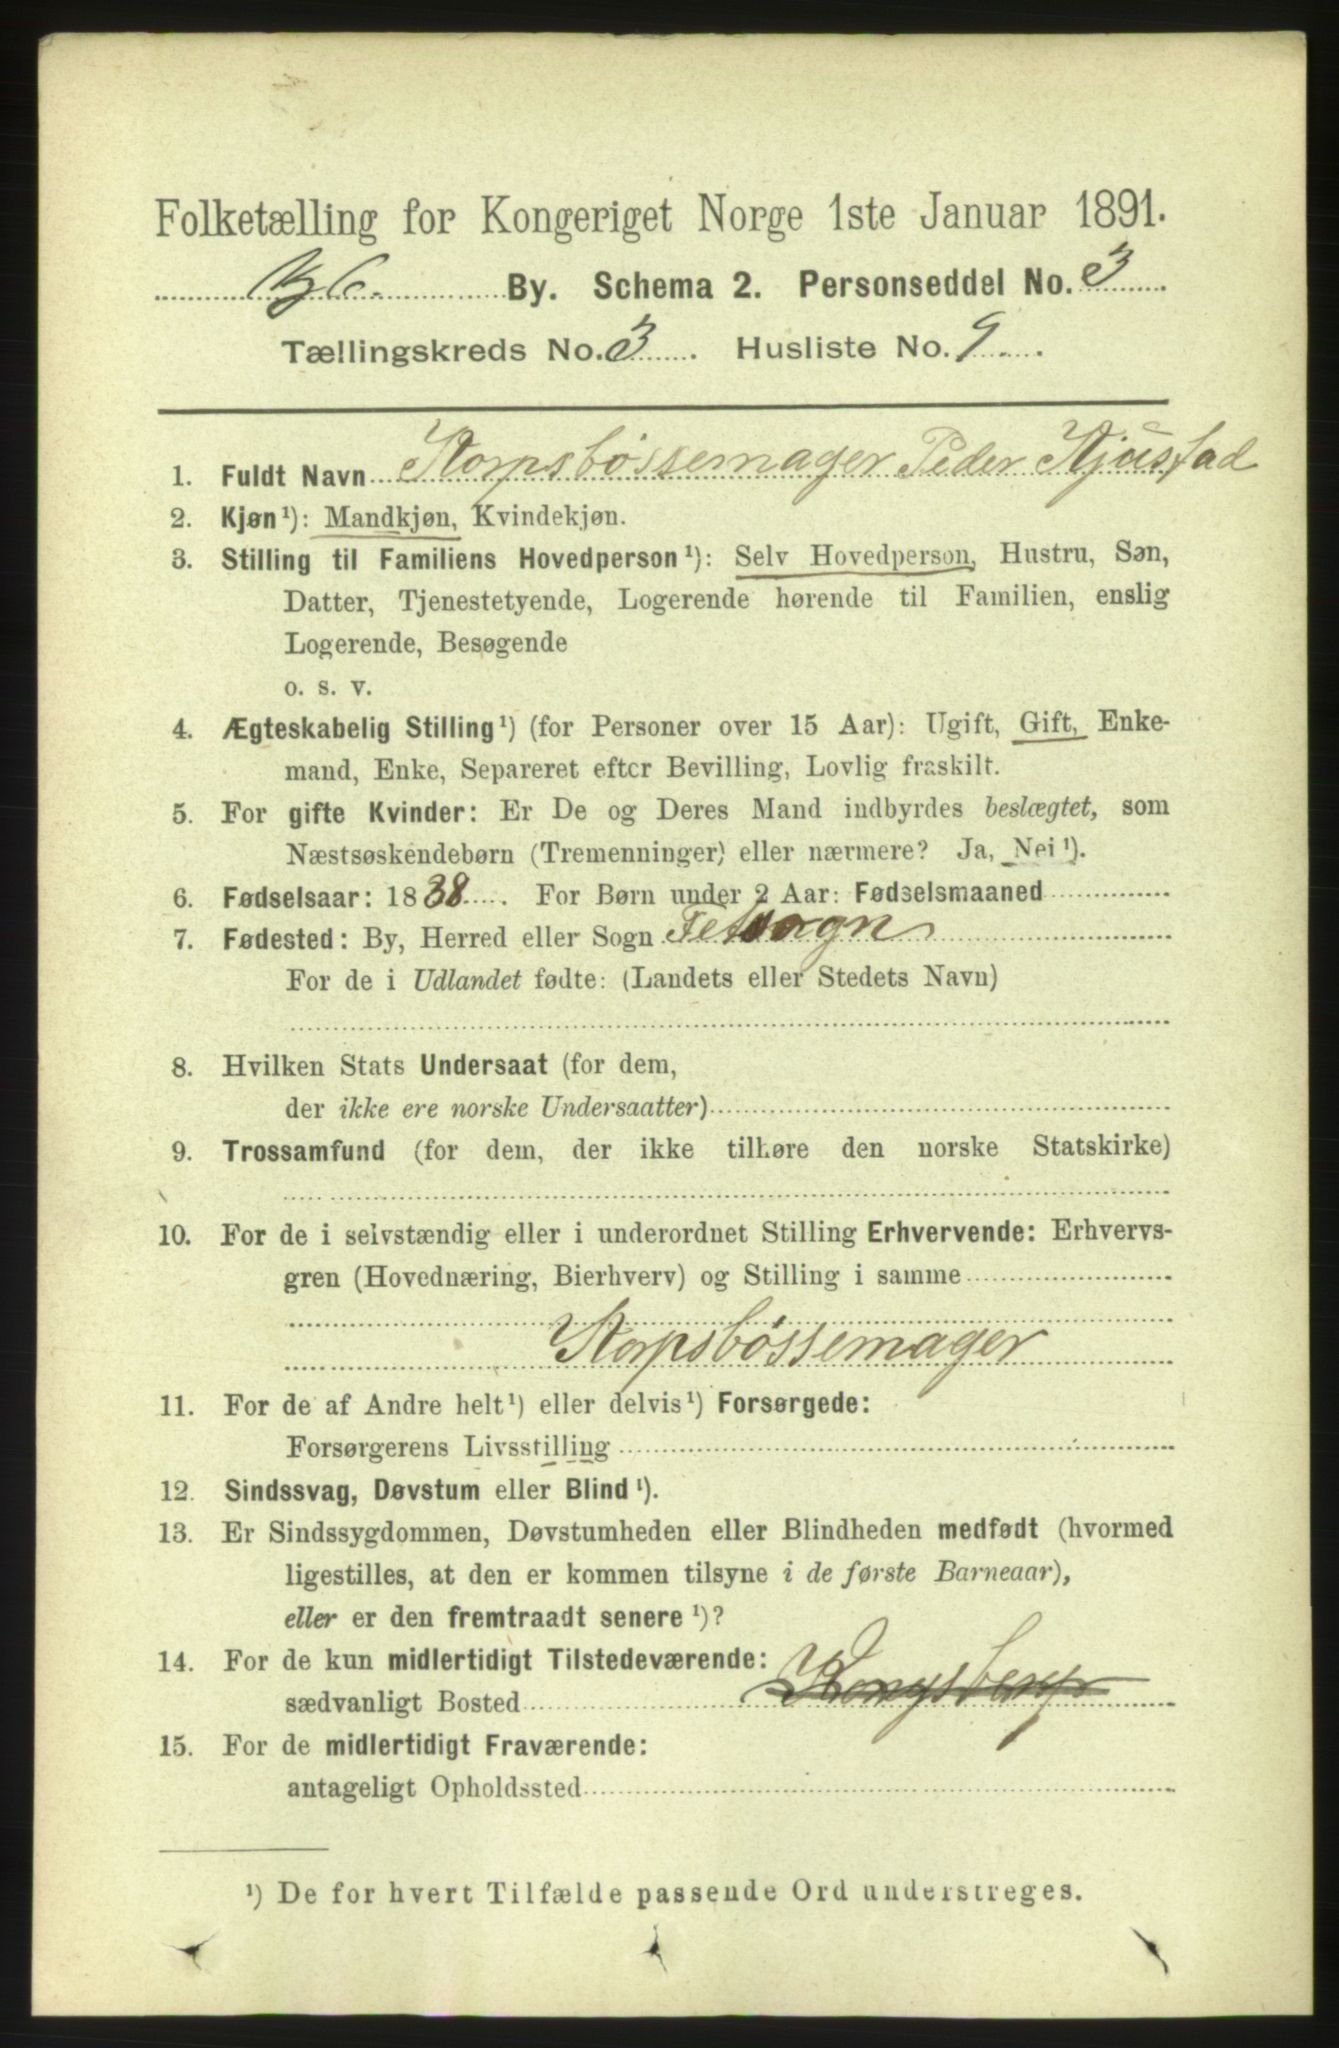 Folketælling for Kongeriget Norge 1ste Januar 1891.
By. Schema 2. Personseddel No. 3
Tællingskreds No. 3. Husliste No. 9.
1. Fuldt Navn Korpsbössemager Peder Kjustad
2. Kjøn¹): Mandkjøn, Kvindekjøn.
3. Stilling til Familiens Hovedperson¹): Selv Hovedperson, Hustru, Søn,
Datter, Tjenestetyende, Logerende hørende til Familien, enslig
Logerende, Besøgende
o. s. v.
4. Ægteskabelig Stilling¹) (for Personer over 15 Aar): Ugift, Gift, Enke-
mand, Enke, Separeret efter Bevilling, Lovlig fraskilt.
5. For gifte Kvinder: Er De og Deres Mand indbyrdes beslægtet, som
Næstsøskendebørn (Tremenninger) eller nærmere? Ja, Nei¹).
6. Fødselsaar: 1838. For Børn under 2 Aar: Fødselsmaaned
7. Fødested: By, Herred eller Sogn Fetsogn
For de i Udlandet fødte: (Landets eller Stedets Navn)
8. Hvilken Stats Undersaat (for dem,
der ikke ere norske Undersaatter)
9. Trossamfund (for dem, der ikke tilhøre den norske Statskirke)
10. For de i selvstændig eller i underordnet Stilling Erhvervende: Erhvervs-
gren (Hovednæring, Bierhverv) og Stilling i samme
Korpsbössemager
11. For de af Andre helt¹) eller delvis¹) Forsørgede:
Forsørgerens Livsstilling
12. Sindssvag, Døvstum eller Blind¹).
13. Er Sindssygdommen, Døvstumheden eller Blindheden medfødt (hvormed
ligestilles, at den er kommen tilsyne i de første Barneaar),
eller er den fremtraadt senere¹)?
14. For de kun midlertidigt Tilstedeværende:
sædvanligt Bosted Kongsberg
15. For de midlertidigt Fraværende:
antageligt Opholdssted
¹) De for hvert Tilfælde passende Ord understreges.